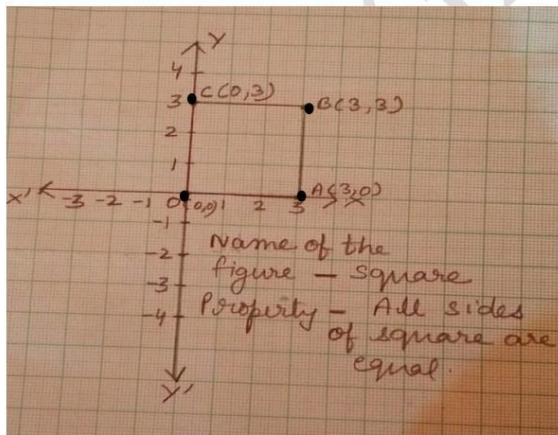 Y
4
3 C(0,3) B(3,3)
2
1
X' -3 -2 -1 0 (0,0) 1 2 3 A(3,0) X
-1
-2
-3
-4
Y'
Name of the
figure - Square
Property - All sides
of square are
equal.